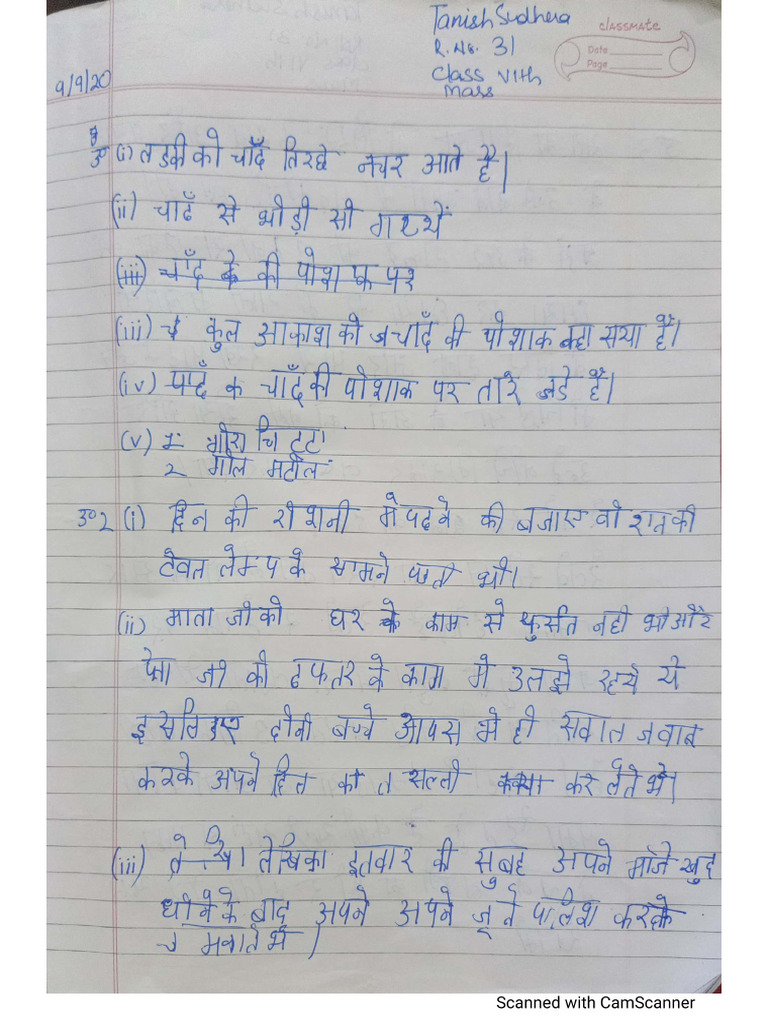 Tanish Sudhera
CLASSMATE
R. No. 31
Date
Page
Class VIth
Mars
9/9/20
उ० (i) लडकी को चाँद तिरछे नजर आते है।
(ii) चाँद से थोड़ी सी गप्पें
(iii) चाँद के की पोशाक पर
(iii) कुल आकाश को चाँद की पोशाक कहा गया है।
(iv) चाँद की पोशाक पर तारे जडे हैं।
(v) 1: गोरा चिट्टा
2 गोल मटोल
उ०2 (i) दिन की रोशनी मे पढने की बजाए वो रात की
टेबल लेम्प के सामने
(ii) माता जी को घर के काम से फुर्सत नही थी और
पिता जी को दफतर के काम मे उलझे रहते थे
इसलिए दोनो बच्चे आपस मे ही सवाल जवाब
करके अपने दिल का तसल्ली कर लेते थे।
(iii) लेखिका इतवार की सुबह अपने मोजे खुद
धोने के बाद अपने अपने जूते पालिश करके
Scanned with CamScanner